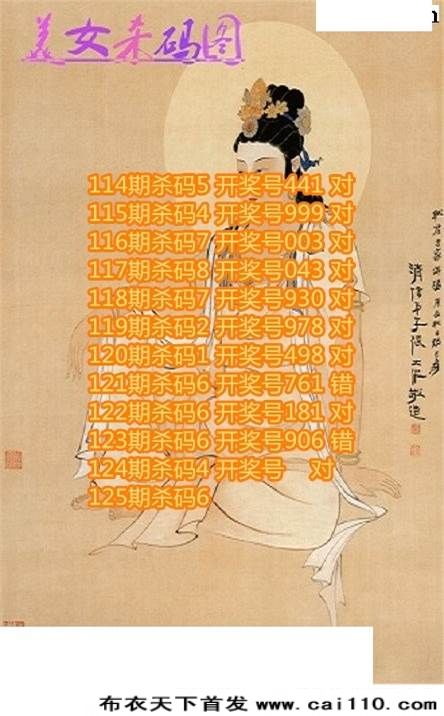 美女杀码图
114期杀码5 开奖号441 对
115期杀码4 开奖号999 对
116期杀码7 开奖号003 对
117期杀码8 开奖号043 对
118期杀码7 开奖号930 对
119期杀码2 开奖号978 对
120期杀码1 开奖号498 对
121期杀码6 开奖号761 错
122期杀码6 开奖号181 对
123期杀码6 开奖号906 错
124期杀码4 开奖号 对
125期杀码6
布衣天下首发 www.cai110.com